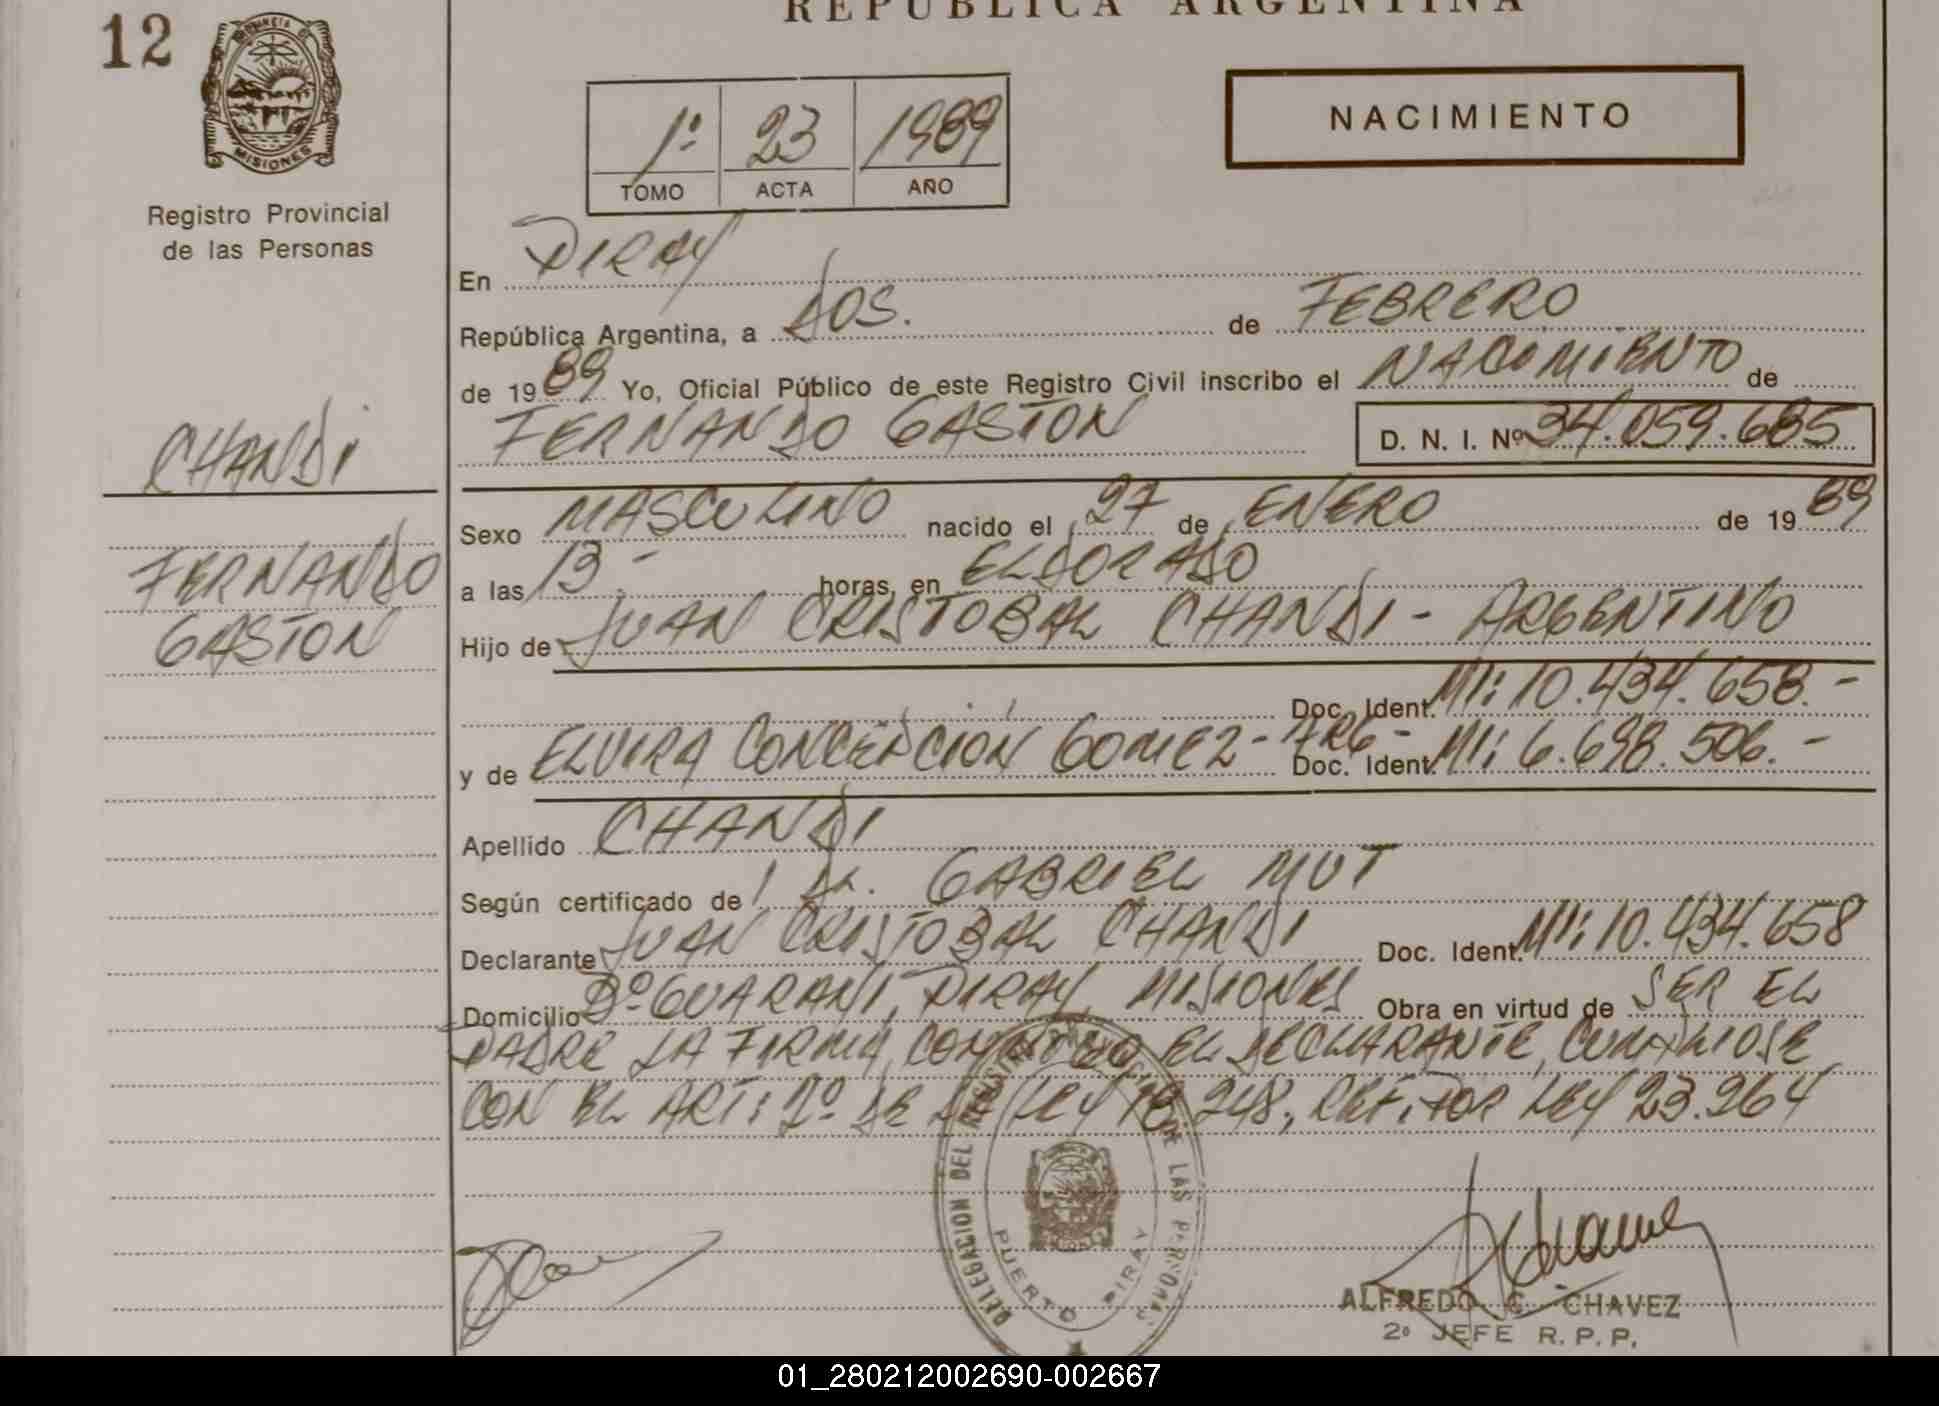 REPUBLICA ARGENTINA
12
MISIONES
Registro Provincial
de las Personas
1º 23 1989
TOMO ACTA AÑO
NACIMIENTO
En PIRAY
República Argentina, a DOS. de FEBRERO
de 1989 Yo, Oficial Público de este Registro Civil inscribo el NACIMIENTO de
FERNANDO GASTON D. N. I. Nº 34.059.685
CHANDI
FERNANDO
GASTON
Sexo MASCULINO nacido el 27 de ENERO de 1989
a las 13- horas, en ELDORADO
Hijo de JUAN CRISTOBAL CHANDI - ARGENTINO
Doc. Ident. MI: 10.434.658.-
y de ELVIRA CONCEPCIÓN GOMEZ - ARG - Doc. Ident. MI: 6.698.506.-
Apellido CHANDI
Según certificado de Dr. GABRIEL MUT
Declarante JUAN CRISTOBAL CHANDI Doc. Ident. MI: 10.434.658
Domicilio Bº GUARANI, PIRAY, MISIONES Obra en virtud de SER EL
PADRE LA FIRMA, CONMIGO EL DECLARANTE, CUMPLIOSE
CON EL ART: 2º DE LA LEY 18.248, REF. POR LEY 23.264
DELEGACION DEL REGISTRO PROVINCIAL DE LAS PERSONAS
PUERTO PIRAY
ALFREDO C. CHAVEZ
2º JEFE R.P.P.
01_280212002690-002667